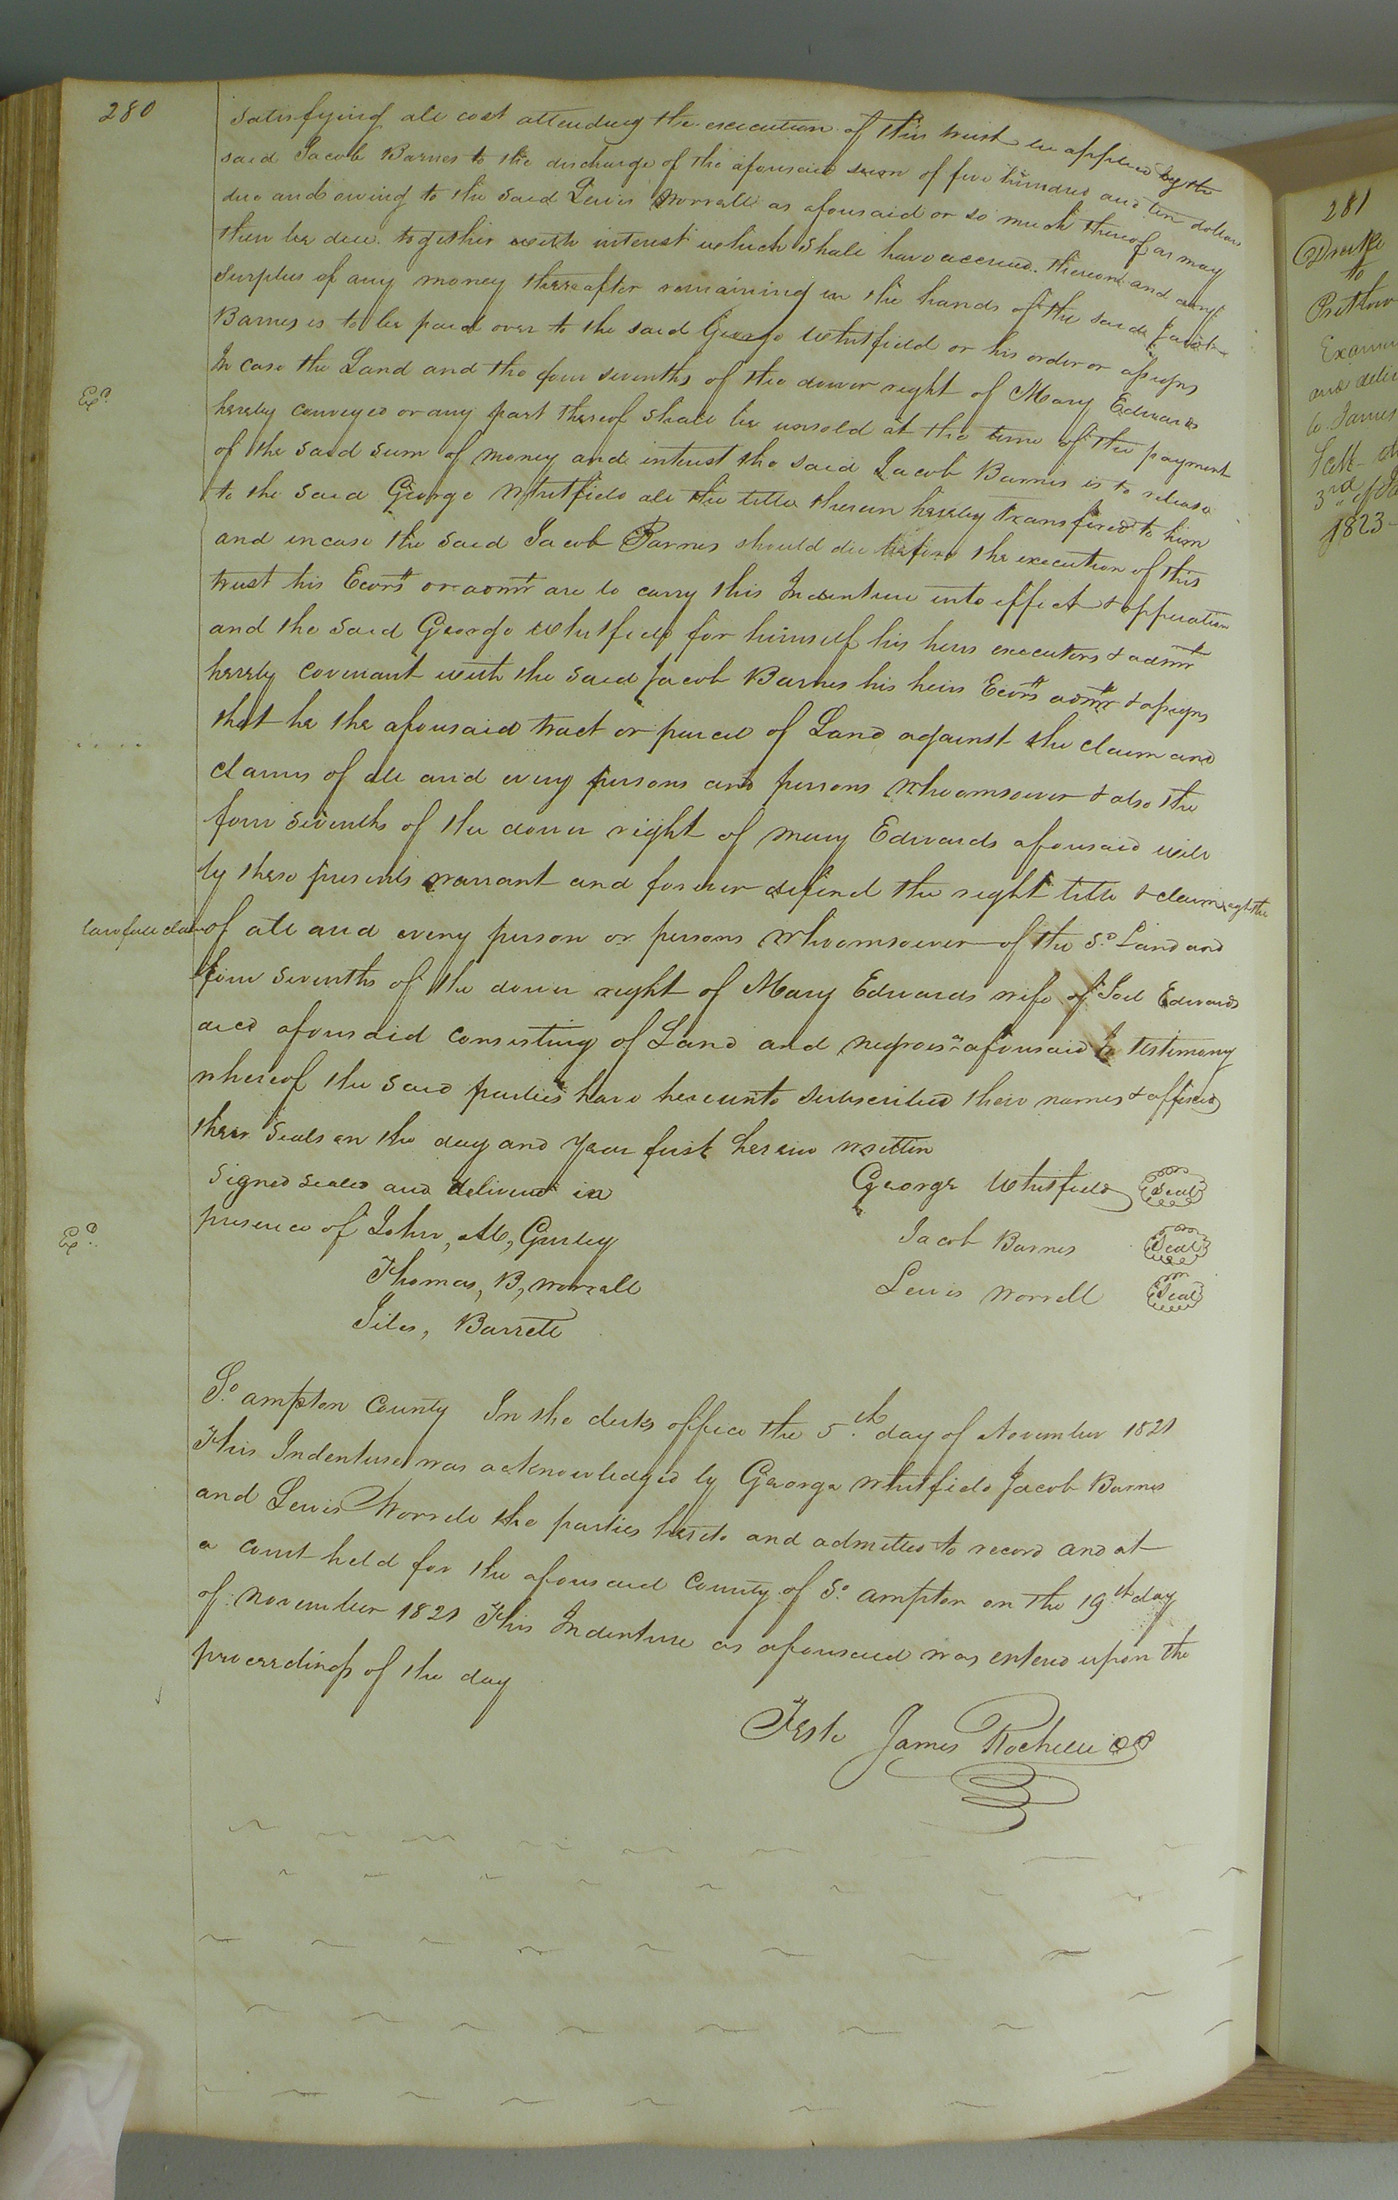 280
satisfying all cost attending the execution of this trust be applied by the
said Jacob Barnes to the discharge of the aforesaid sum of five hundred and ten dollars
due and owing to the said Lewis Worrell as aforesaid or so much thereof as may
then be due together with interest which shall have accrued thereon and any
surplus of any money thereafter remaining in the hands of the said Jacob
Barnes is to be paid over to the said George Whitfield or his order or assigns
In case the Land and the four sevenths of the dower right of Mary Edwards
hereby conveyed or any part thereof shall be unsold at the time of the payment
of the said sum of money and interest the said Jacob Barnes is to release
to the said George Whitfield all the title therein hereby transfered to him
and incase the said Jacob Barnes should die before the execution of this
trust his Ecors or admr are to carry this Indenture into effect & opperation
and the said George Whitfield for himself his heirs executors & admr
hereby covenant with the said Jacob Barnes his heirs Ecors admr & assigns
that he the aforesaid tract or parcel of Land against the claim and
claims of all and every persons and persons whoomsoever & also the
four sevenths of the dower right of Mary Edwards aforesaid will
by these presents warrant and forever defend the right title & claim agst the
lawfull claim of all and every person or persons whoomsoever of the sd Land and
four sevenths of the dower right of Mary Edwards wife of Joel Edwards
decd aforesaid consisting of Land and negroes as aforesaid In testimony
whereof the said parties have hereunto subscribed their names & affixed
their seals on the day and year first herein written
Signed sealed and delivered in George Whitfield Seal
presence of John, M, Gurley Jacob Barnes Seal
Thomas, B, Worrell Lewis Worrell Seal
Giles, Barrett
So. ampton County In the clerks office the 5th day of November 1821
This Indenture was acknowledged by George Whitfield Jacob Barnes
and Lewis Worrell the parties hereto and admitted to record and at
a court held for the aforesaid County of So. ampton on the 19th day
of November 1821 This Indenture as aforesaid was entered upon the
proceedings of the day
Teste James Rochelle
281
to
and
to James
3rd of
1823